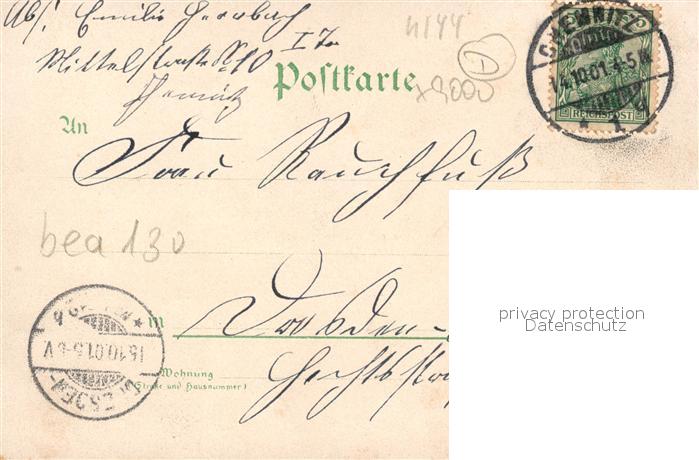 Abs. Emilie Gerbach
Mittelstraße No 10 I Tr
Chemnitz
4144
D
x9000
Postkarte
CHEMNITZ
14.10.01.4-5N
* 1
REICHSPOST
An
Frau Rauchfuß
bea 130
in Dresden-
Wohnung
(Straße und Hausnummer)
Hechtstr
DRESDEN-
15.10.01.5-6V
privacy protection
Datenschutz